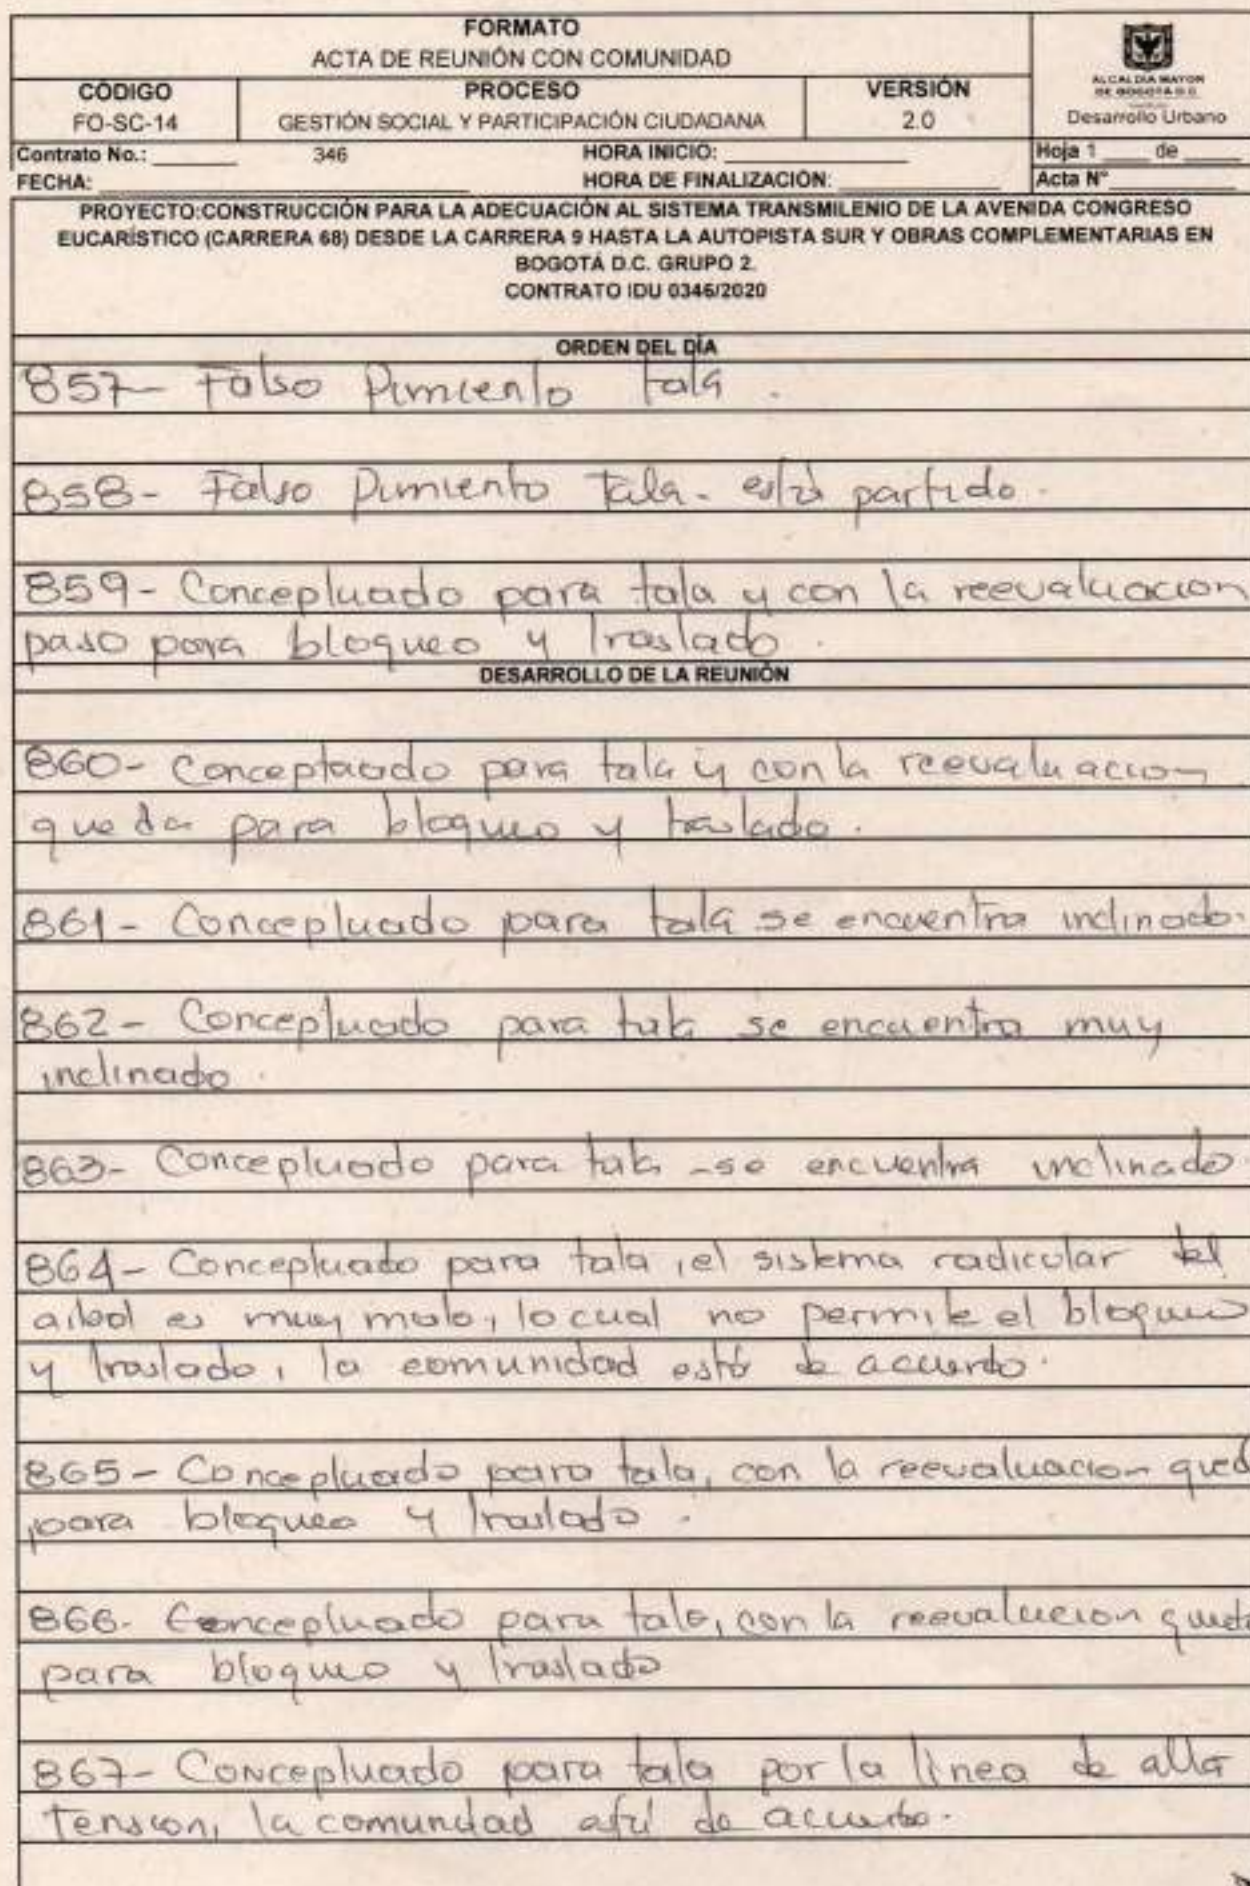 FORMATO
ACTA DE REUNIÓN CON COMUNIDAD
CÓDIGO
FO-SC-14
PROCESO
GESTIÓN SOCIAL Y PARTICIPACIÓN CIUDADANA
VERSIÓN
2.0
ALCALDIA MAYOR
DE BOGOTÁ D.C.
Desarrollo Urbano
Contrato No.: 346 HORA INICIO: Hoja 1 de
FECHA: HORA DE FINALIZACIÓN: Acta N°
PROYECTO:CONSTRUCCIÓN PARA LA ADECUACIÓN AL SISTEMA TRANSMILENIO DE LA AVENIDA CONGRESO
EUCARÍSTICO (CARRERA 68) DESDE LA CARRERA 9 HASTA LA AUTOPISTA SUR Y OBRAS COMPLEMENTARIAS EN
BOGOTÁ D.C. GRUPO 2.
CONTRATO IDU 0346/2020
ORDEN DEL DÍA
857- Falso Pimiento tala.
858- Falso Pimiento Tala- está partido.
859- Conceptuado para tala y con la reevaluacion
paso para bloqueo y traslado.
DESARROLLO DE LA REUNIÓN
860- Conceptuado para tala y con la reevaluacion
queda para bloqueo y traslado.
861- Conceptuado para tala se encuentra inclinado.
862- Conceptuado para tala se encuentra muy
inclinado.
863- Conceptuado para tala -se encuentra inclinado.
864- Conceptuado para tala, el sistema radicular del
arbol es muy malo, lo cual no permite el bloqueo
y traslado, la comunidad está de acuerdo.
865- Conceptuado para tala, con la reevaluacion qued
para bloqueo y traslado.
866- Conceptuado para tala, con la reevaluacion queda
para bloqueo y traslado
867- Conceptuado para tala por la linea de alta
Tension, la comunidad de acuerdo.